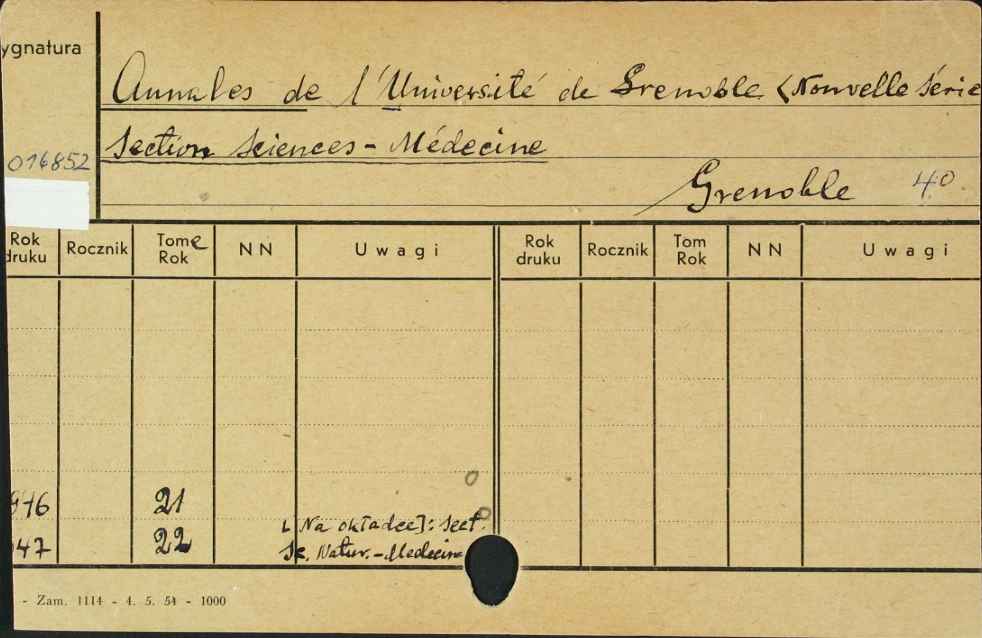 ygnatura
Annales de l'Université de Grenoble <Nouvelle Série
Section Sciences - Médecine
016852
Grenoble 4o
Rok druku Rocznik Tome Rok NN Uwagi Rok druku Rocznik Tom Rok NN Uwagi
946 21
47 22 [Na okładce]: Sect.
Sc. Natur. - Medecine
- Zam. 1114 - 4. 5. 54 - 1000